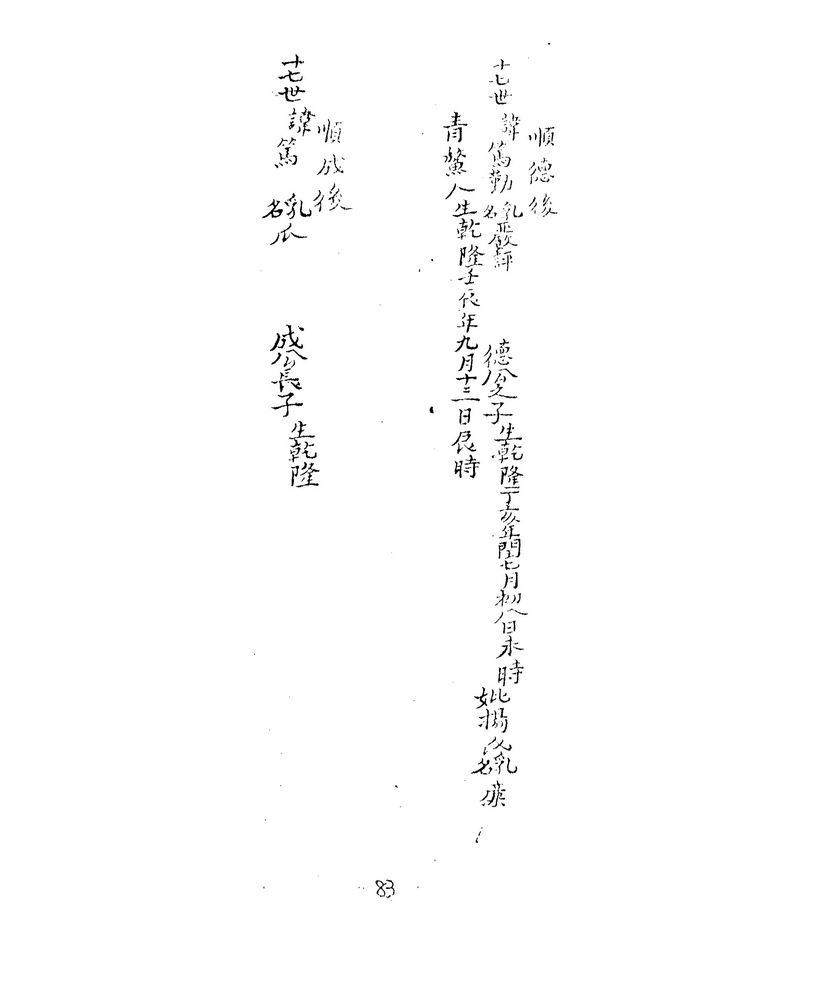 順德後
十七世 諱篤勤 乳名嚴評 德公之子 生乾隆丁亥年閏七月初八日未時 妣楊氏乳名
青鰲人生乾隆壬辰年九月十三日辰時
順成後
十七世 諱篤 乳名爪 成公長子 生乾隆
83